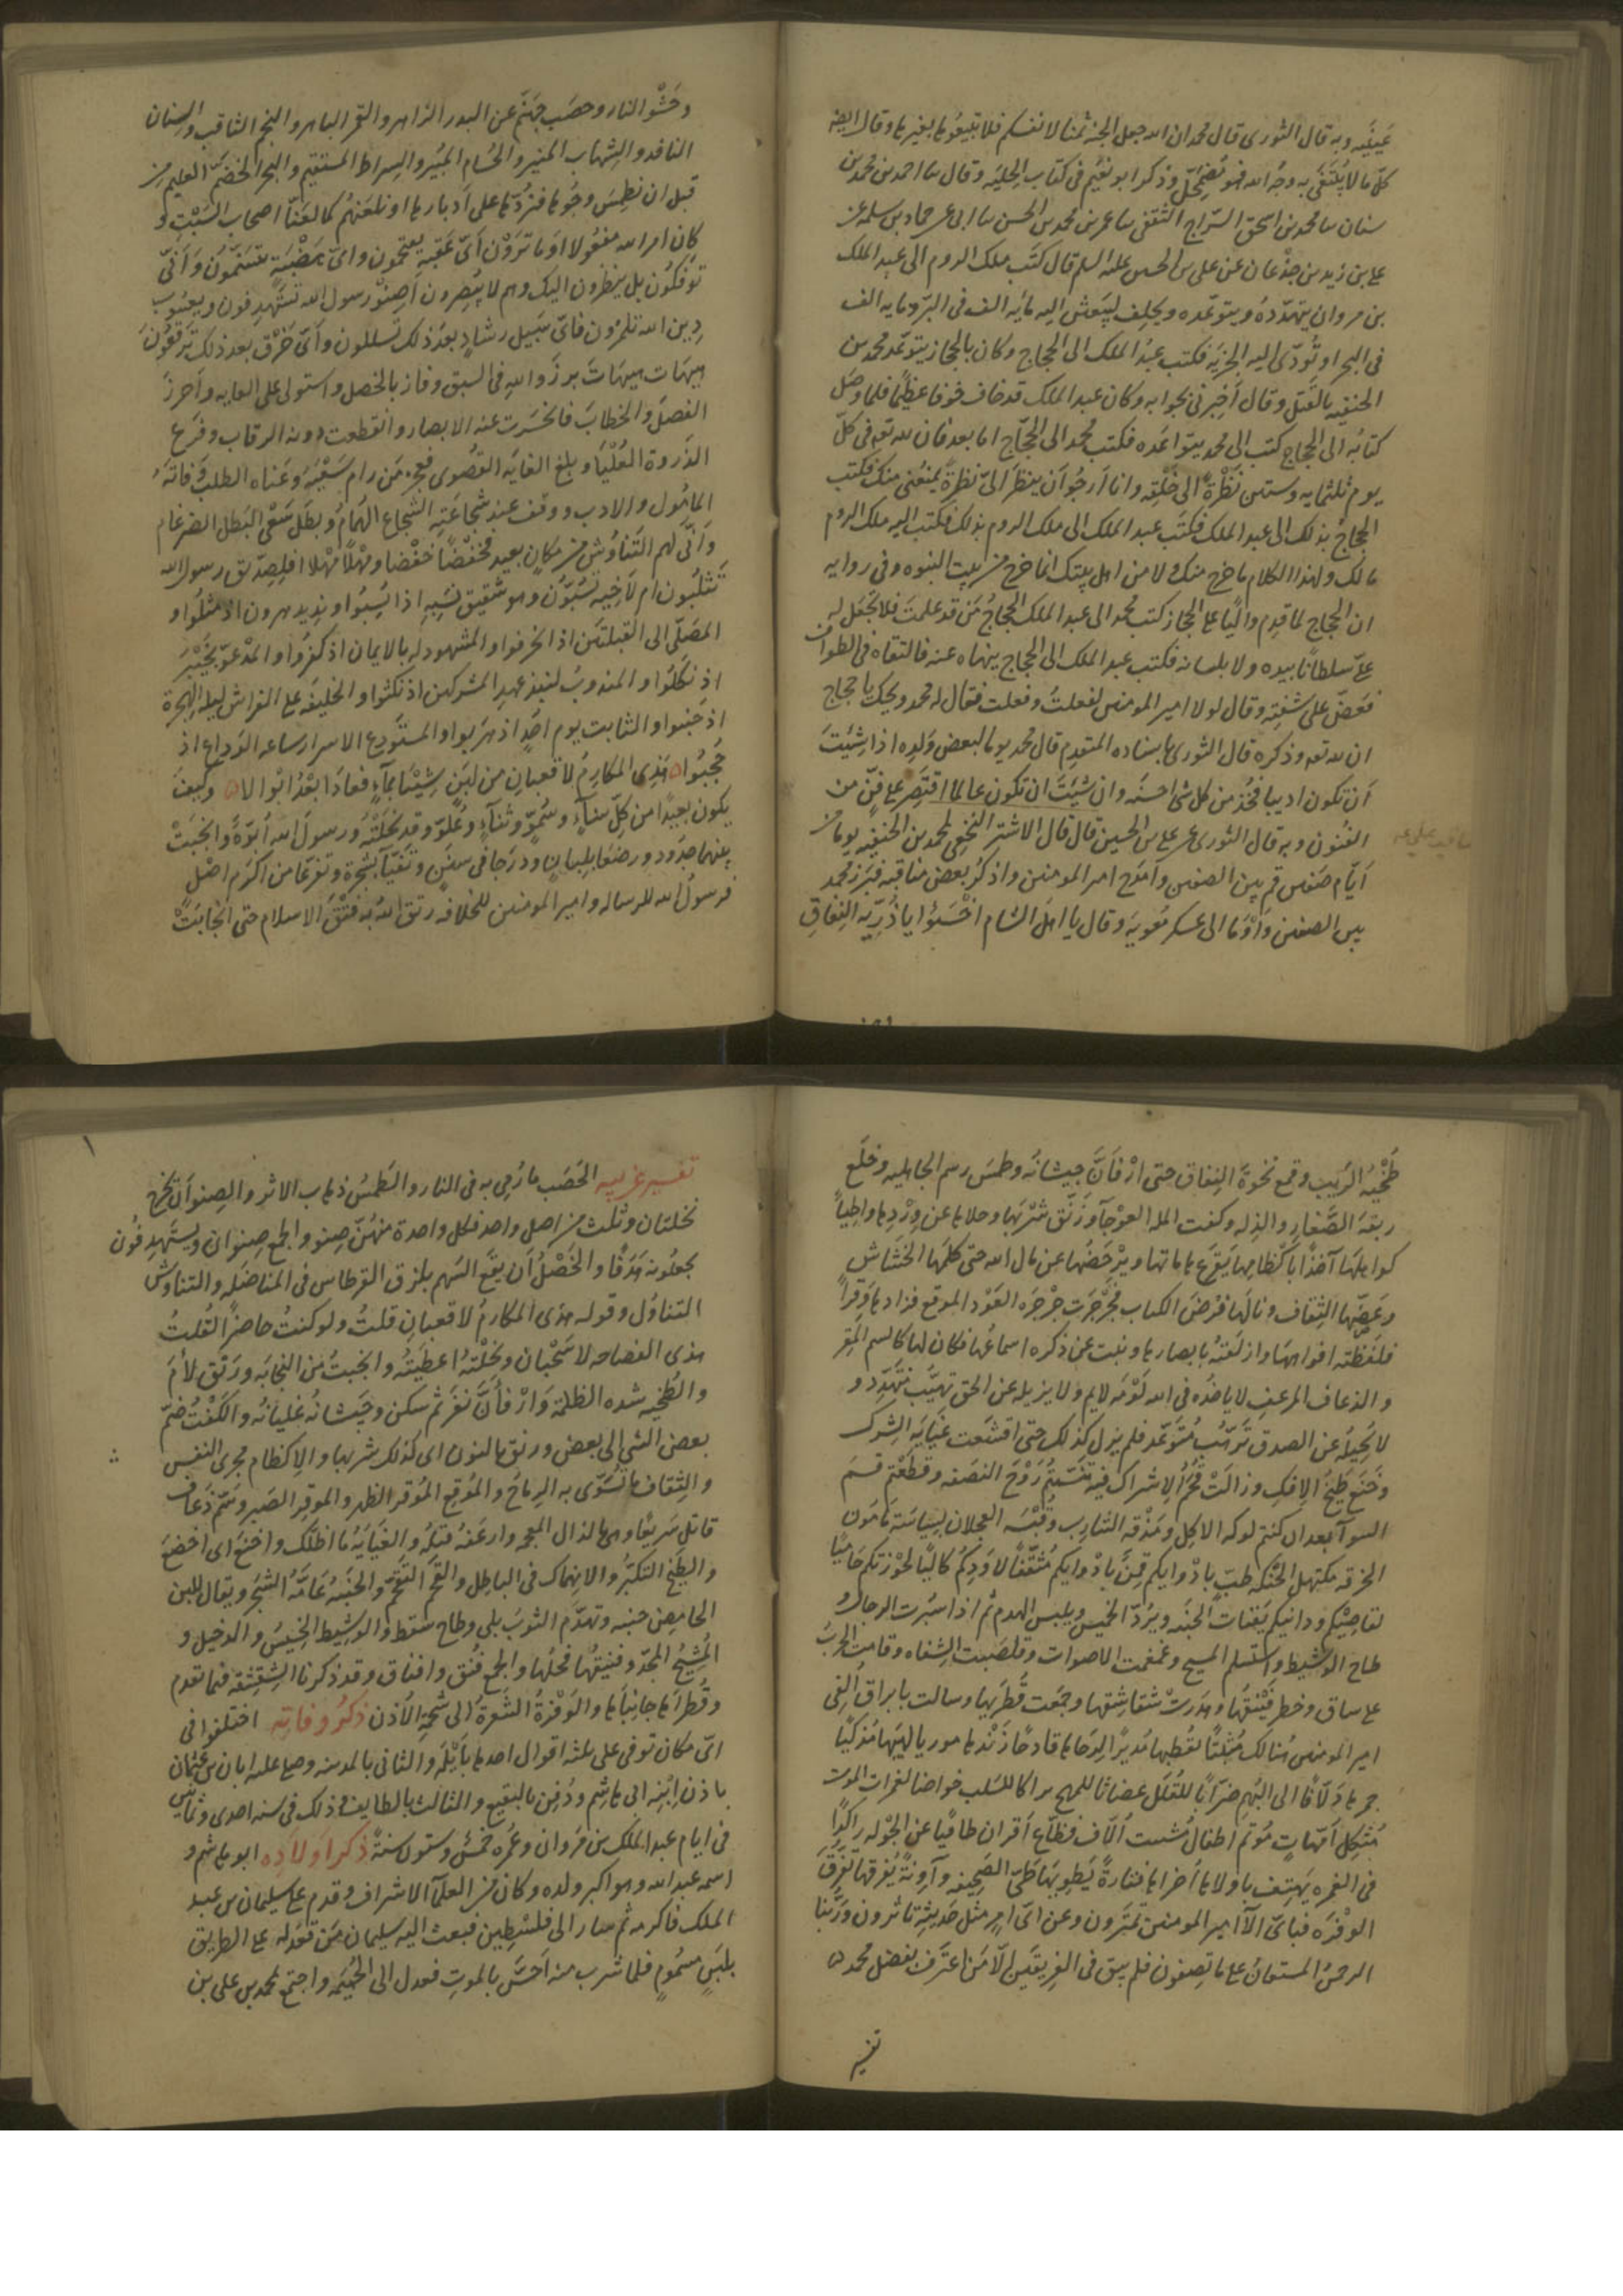 عَينَيه وبه قال الثورى قال محمد ان الله جعل الجنة ثمنا لانفسكم فلا تبيعُوها بغيرها وقال ايضه
كلّ ما لا يُبتَغَى به وجهُ الله فهو يَضمَحِلّ وذكر ابو نعيُم فى كتاب الحِليَه وقال سا احمد بن محمد بن
سنان سا محمد بن اسحق السّراج الثقفى سا عمر بن محمد بن الحسن سا ابى عن حماد بن سلمه عن
على بن زيد بن جدْعان عن على بن الحسين عليه السلم قال كتَب ملك الروم الى عبد الملك
بن مروان يتهدّدهُ ويتوعّده ويحلِف ليَبعثن اليه مايَه الف فى البرّ ومايه الف
فى البحر او تُودّى اليه الجِزيَه فكتب عبدُ الملك الى الحجاج وكان بالحجاز يتوعّد محمد بن
الحنفيه بالقَتل وقال أخبِرنى بجوابه وكان عبد الملك قد خاف خوفا عظيمًا فلما وصَل
كتابُه الى الحجاج كتب الى محمد يتواعَده فكتب محمد الى الحجّاج اما بعد فان لله تعه فى كلّ
يوم ثلثمايه وستين نَظْرَةً الى خلقِه وانا أرجُو أن ينظرَ الىّ نظرَةً يمنعُنى منك فكتب
الحجاجُ بذلك الى عبد الملك فكتَب عبد الملك الى ملك الروم بذلك فكتب اليه ملك الروم
مالك ولهذا الكلام ما خرج منك ولا من اهل بيتك انما خرج من بيت النبوه وفى روايه
ان الحجاج لما قدِم واليًا على الحجاز كتب محمد الى عبد الملك الحجاجُ مَن قد علمتَ فلا تجعَل له
علىّ سلطانًا بيده ولا بلسانه فكتب عبد الملك الى الحجاج ينهاه عنه فالتقاه فى الطواف
فعَضّ على شفتِه وقال لولا امير المومنين لفعلتُ وفعلت فقال له محمد ويحك يا حجاج
ان لله تعه وذكره قال الثورى باسناده المتقدِم قال محمد يوما لبعض وَلدِه اذا شِئتَ
أن تكون اديبا فخُذ من كل شى احسنَه وان شِئتَ ان تكون عالما اقتصِر على فنّ من
الفنُون وبه قال الثورى عن على بن الحسين قال قال الاشتر النخعى لمحمد بن الحنفيه يوما من
أيّام صفين قم بين الصفين وأمدَح امير المومنين واذكُر بعض مناقبه فبَرز محمد
بين الصفين وأومَا الى عسكر مَعويَه وقال يا اهل الشام اخسَئُوا يا ذُرّيّه النِفاقِ
وحَشْو النار وحصَب جهنّم عن البدر الزاهر والقمر الباهر والنجم الثاقب والسِنان
النافد والشِهاب المنير والحُسام المُبير والسِراط المستقيم والبحر الخضَمّ العليم من
قبل ان نطمِسَ وجُوها فنرُدّها على أدبارها او نلعَنهُم كما لعَنّا اصحاب السَبْتِ و
كان امر الله مفعُولا اوَ ما ترَوْن أىّ عَقَبةٍ يقتحمُون واىّ هَضْبَةٍ يتسَنّمُون وأنّى
توفكُون بل ينظرون اليك وهم لا يبُصِرون أصِنْوَ رسول الله تستهدِفون ويعسُوب
دين الله تلمزون فاىّ سبيل رشادٍ بعد ذلك تسلكون وأىّ خَرْقٍ بعد ذلك ترقعُون
هيهات هيهاتَ برزَ والله فى السبق وفاز بالخصل واستولى على الغايه وأحرزَ
الفصلَ والخطابَ فانحَسَرت عنه الابصار وانقطعت دونه الرقاب وفرَع
الذروة العُلْيا وبلغ الغايه القصْوى فعجز مَن رام سَعْيَهُ وعَناه الطلبُ وفاتهُ
المامُول والارب ووقف عند شجاعَتهِ الشجاع الهُمامُ وبطَل سَعْى البَطل الضرغام
وأنّى لهم التَناوُش من مكانٍ بعيد فخفْضًا خفْضا ومَهْلًا مَهْلا افلِصِدّيق رسول الله
تَثلبُون ام لأخيه تسُبّون وهو شقيق نسَبِهِ اذا نُسِبُوا ونديد هرون اذ مثلُوا و
المصَلّى الى القبلتَين اذ انحَرفوا والمشهود له بالايمان اذ كفرُوا والمَدْعوّ بخيْبَرَ
اذ نكَلُوا والمندوبُ لنبذِ عهدِ المشركين اذ نكثوا والخليفهُ على الفِراش ليلهَ الهجرة
اذ جبُنوا والثابت يوم أُحُدٍ اذ هرَبوا والمستَودَع الاسرار ساعه الوَداع اذ
حُجبُوا ه هَذِى المكارِمُ لا قعبان من لبَنٍ شِيْبَا بمآءٍ فعادَا بَعْدُ أبْوالا ه وكيفَ
يكون بعيدًا من كلّ سنآءٍ وسُموّ وثنآءٍ وعُلوّ وقد نجَلتْهُ ورسولَ الله أبوّةٌ وانجبَتْ
بينهما جدُود ورضعَا بلِبانٍ ودرَجا فى سنَنٍ وتفيّآ بشجرة وتفرّعا من اكرَم اصْلٍ
فرسولُ الله للرساله وامير المومنين للخلافه رتق اللهُ به فتْقَ الاسلام حتى انجابَتْ
طُخْيَهُ الرَيب وقمع نخوَةَ النِفاق حتى ارْفأنّ جيشانُه وطمَس رسم الجاهليه وخلَع
ربقه الصَغار والذِله وكفت المله العَوْجآ ورَنّق شرْبَها وحلاها عن وِرْدِها واطِيًا
كواهلَها آخذًا باكظامِها يَقرَع هاماتها ويرْحَضُها عن مال الله حتى كلمَها الخشاش
وعَضّها الثِقاف ونالَها فرْضُ الكتاب فجَرْجَرت جَرْجَره العَوْد الموقع فزادها وِقرًا
فلفظته افواهها وازلَقتهُ بابصارها ونبت عن ذكره اسماعُها فكان لها كالسم المُقِر
والذعاف المزعِف لا ياخذُه فى الله لَومَه لايم ولا يزيله عن الحق تهيّب متهَدِّد و
لا يُحيلهُ عن الصدق ترَهّبُ مُتوَعّد فلم يزل كذلك حتى اقشَعت غيايَة الشرك
وخَنَع طَيْخُ الافك وزالَتْ قُحَمُ الاشراك فيه تنسّمتُم رَوْحَ النصَفه وقطعْتم قسَمَ
السوآ بعد ان كنتم لوكه الاكِل ومَذْقه الشارِب وقُبْسَه العجلان بسياسَة مامُون
الخرقه مكتهل الحُنكه طبّ بادْوايكم قمِن بادْوايكم مُثقّفا لاوَدِكُم كالئًا لحوْزتكم حاميًا
لقاصِيْكم ودانيكم يَقتات الجُنبَه ويرُدّ الخميسَ ويلبس الهدم ثم اذا سُبرت الرجال و
طاح الوشِيظ واستسلم المسيح وغمغمت الاصوات وقلصَبت الشفاه وقامت الحَربُ
على ساق وخطر فَنيْقُها وهدَرَتْ شقاشِقها وجمَعت قُطرَيها وسالت بابراق أُلفِىَ
امير المومنين هُنالك مُثبِتًا لقُطبها مُديرًا لِرَحاها قادِحًا زَنْدها موريًا لهبَها مُذكيًا
جمرها دَلّافًا الى البُهم ضرّابًا للقُلل غصابًا للمهج براكا للسَلب خواضا لغمرات الموت
مُثكِل أُمّهاتٍ مُوتم اطفالٍ مُشتت أُلّاف قطّاع أقران طافِيًا عن الجَوْله راكِدًا
فى الغمره يَهتِف باولاها أُخراها فتارةً يَطويهَا طَىّ الصَحِيفه وآوِنةً يُفرقها تفرّقَ
الوَفْرَه فباىّ آلآ امير المومنين تمترون وعن اىّ امرٍ مثل حَديثه تاثرون ورَبّنا
الرحمنُ المستعانُ على ما تصِفون فلم يبق فى الفريقين الّا مَن اعترَف بفضل محمد ه
تفسير
تفسير غريبه الحَصَب ما رُمِى به فى النار والطَمسُ ذهاب الاثر والصِنوأن تخرج
نخلتان وثلث من اصل واحد فكل واحدة منهنّ صِنو والجمع صِنوان ويستَهدِفُون
يجعلُونه هَدَفًا والخَصْلُ أن يقَع السَهم بلزق القرطاس فى المناضَله والتناوش
التناوُل وقوله هذى المكارمُ لا قعبانِ قلتُ ولو كنتُ حاضرًا لقُلتُ
هذى الفصاحه لا سَحْبان ونجَلتْهُ اعطَيَتهُ وانجبَتْ مِن النجابَه ورَتَق لأمَ
والطُخيه شده الظلمة وَارْفأنّ نفَر ثم سكن وجَيَشانهُ غليانهُ والكَفْتُ ضمّ
بعض الشى الى بعض ورنق بالنون اى كذلك شربها والاكظام مجرى النفس
والثِقاف ما تسَوّى به الرماح والمُوقع المُوقر الظهر والموقِر الصَبِر وسَمّ ذُعاف
قاتل سَريعًا وهو بالذال المعجمه وازعَفهُ قتلهُ والغيَايَهُ ما اظلّك واخنع اى اخضع
والطيْخ التكبّرُ والانهماك فى الباطِل والقحَم التقَحّم والجَنبَهُ عَامّهُ الشجَر ويقال للبن
الحامِض جنبه وتهدّم الثوبَ بلى وطاح سقط والوشيظ الخسِيْسُ والدخِيل و
المُشِيْحُ المجدّ وفنيقُها فحلُها والجمع فُنق وافناق وقد ذكرنا الشِقشِقه فيما تقدم
وقُطراها جانِباها والوَفْرَةُ الشعَرة الى شحمة الاذن ذكرُ وفاتِه اختلفوا فى
اىّ مكان توفى على ثلثه اقوال احدها بأيْلَه والثانى بالمدينه وصلى عليه ابان بن عثمان
باذن ابنه ابى هاشم ودُفِن بالبقيع والثالث بالطايف وذلك فى سنه احدى وثمانين
فى ايام عبد الملك بن مَروان وعُمره خمسٌ وستون سنةً ذكر اولادِه ابو هاشم و
اسمه عبد الله وهو اكبر ولده وكان من العلمآ الاشراف وقدم على سليمان بن عبد
الملك فاكرمه ثم سار الى فلسْطِين فبعث اليه سليمان مَن قعَد له على الطريق
بلبَنٍ مسمُومٍ فلما شرب منه احَسّ بالموتِ فعدل الى الحُمَيْمَه واجتمع لمحمد بن على بن